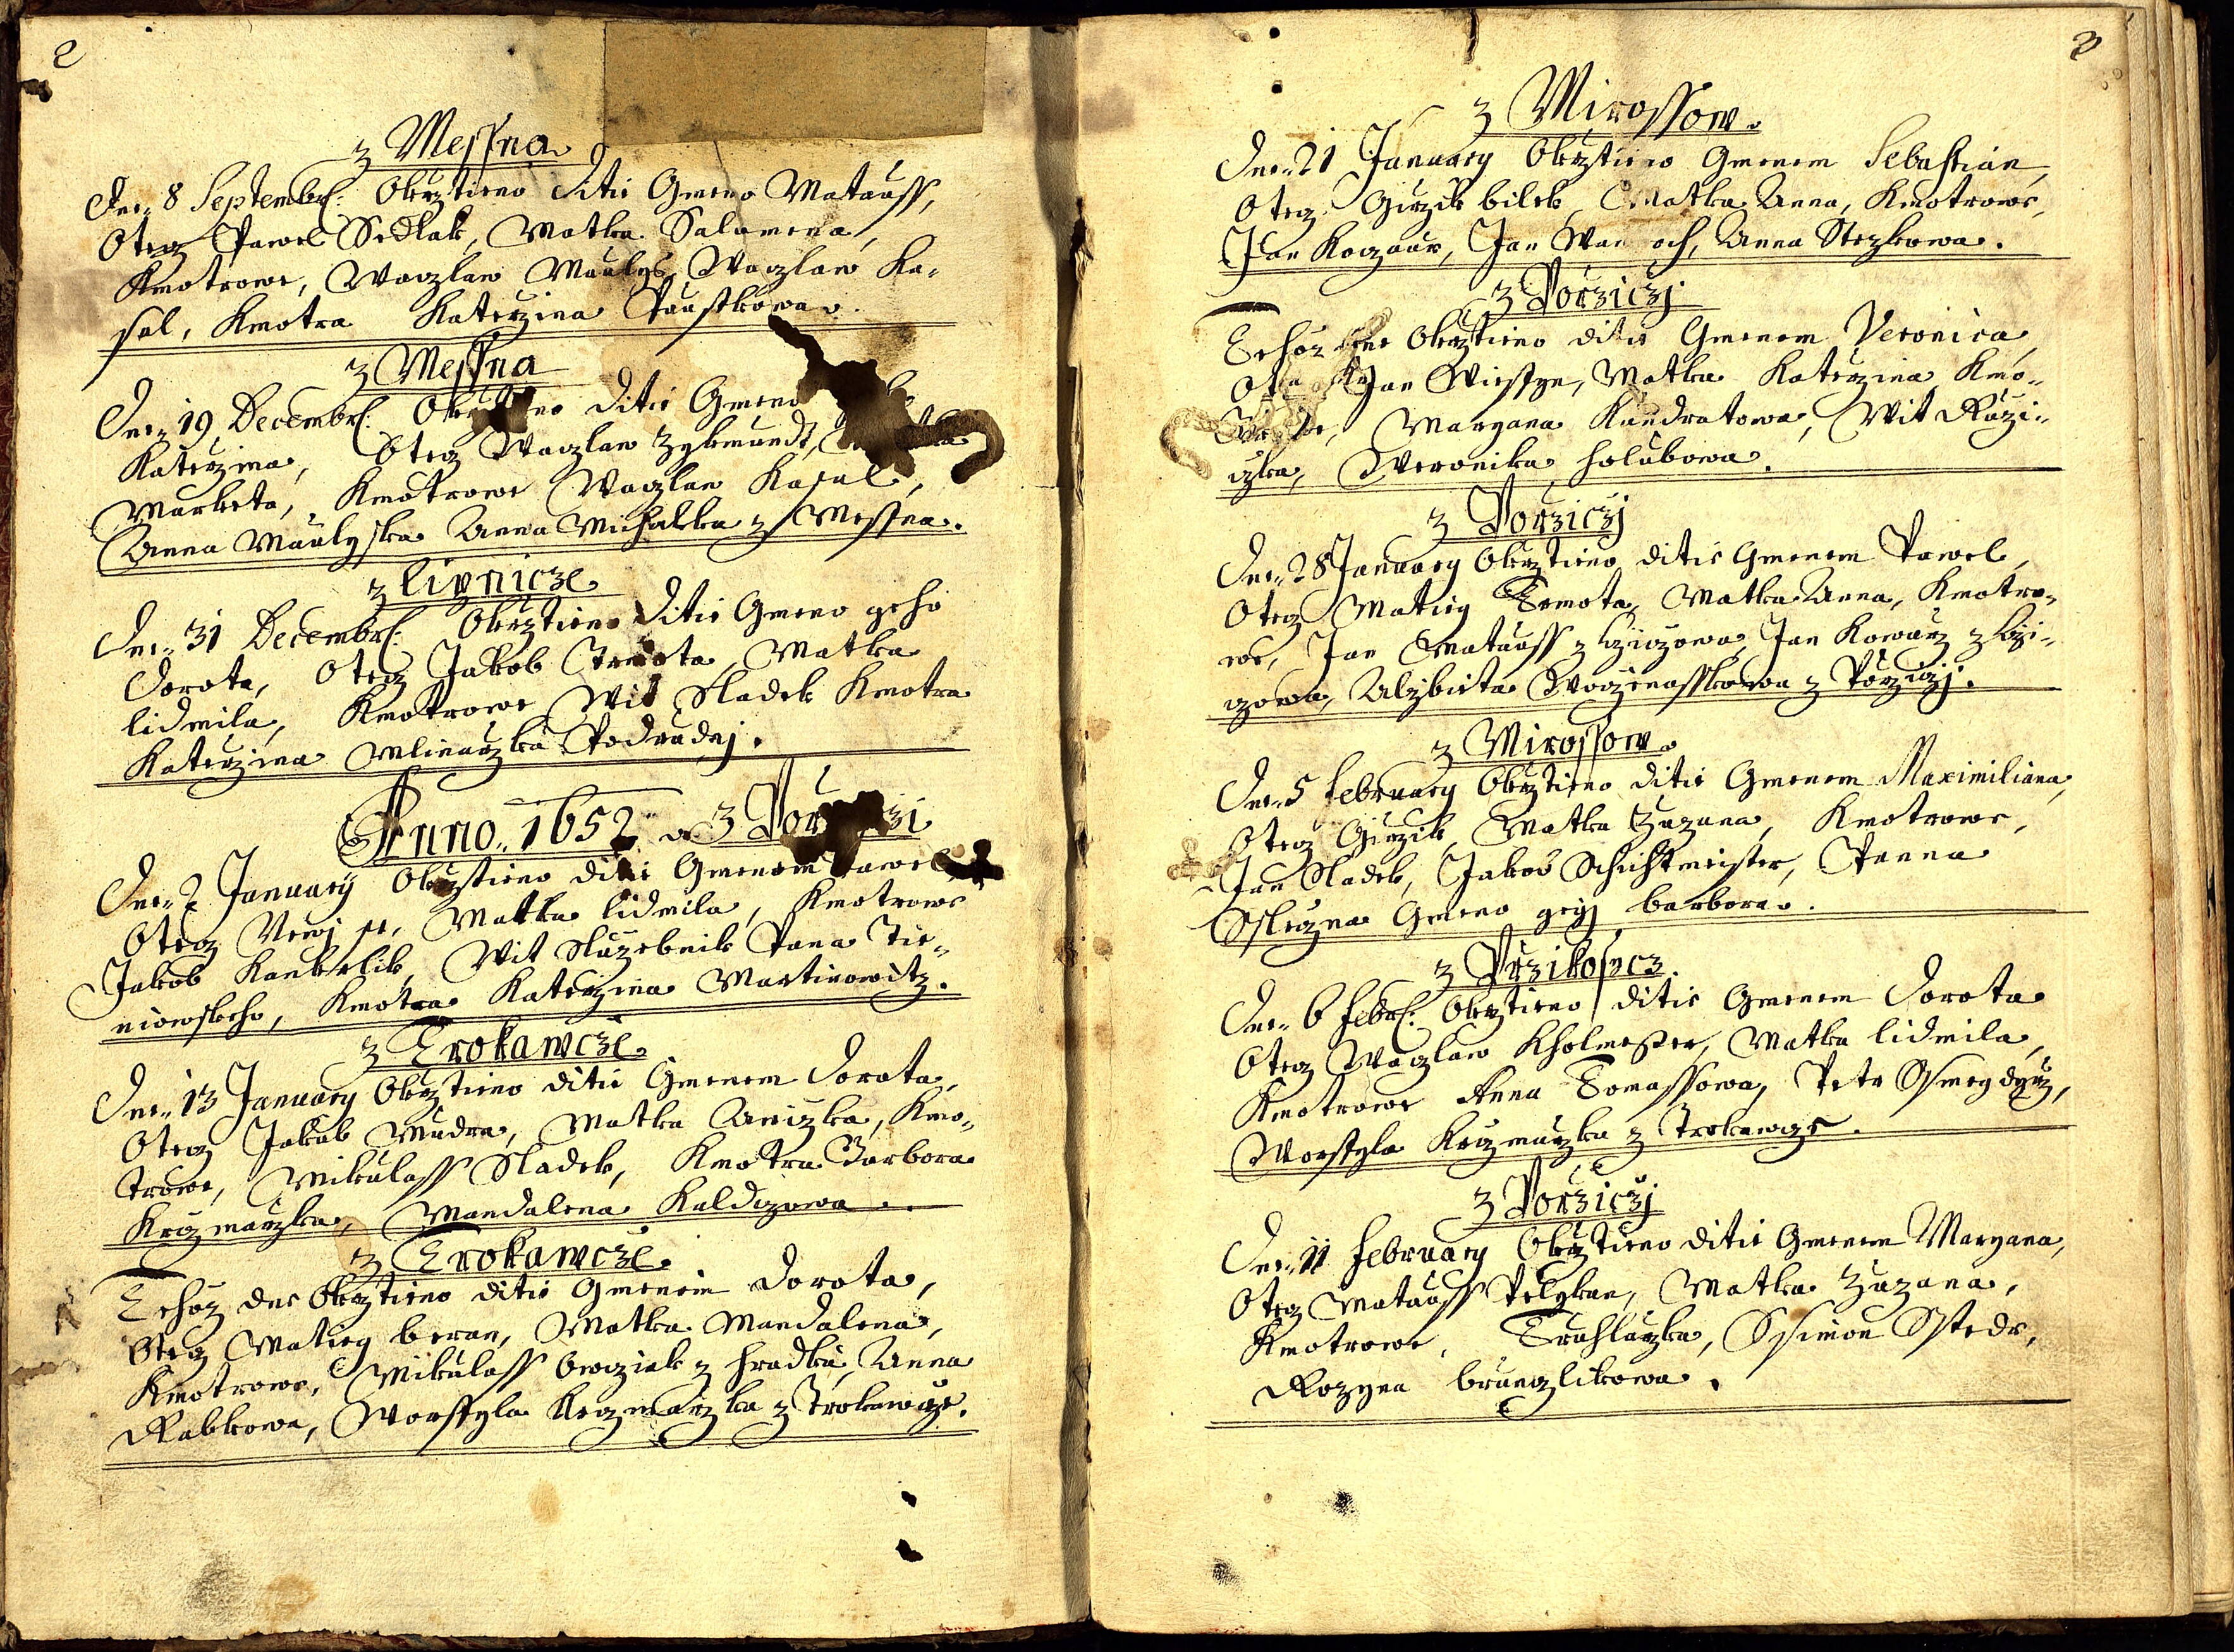 2
z Messna
Dne 8 Septembr: Okrztieno Ditie Gmeno Matauss,
Otecz Pawel Sedlak, Matka Salamena,
Kmotrowe, Waczlaw Maulys, Waczlaw Ka=
sal, Kmotra Katerzina Paustkowa.
z Messna
Dne 19 Decembr: Ditie Gmeno
Katerzina, Otecz Waczlaw Zykmundt,
Marketa, Kmotrowe Waczlaw Kasal,
Anna Maulyska Anna Michalka z Messna.
z Lipnicze
Dne 31 Decembr: Okrztieno Ditie Gmeno geho
Dorota, Otecz Jakob Matka
Lidmila, Kmotrowe Wit Sladek Kmotra
Katerzina Mlinarzka Podradnj.
Anno 1652 z
Dne 2 January Okrztieno ditie Gmenem Pawel,
Otecz Matka Lidmila, Kmotrowe
Jakob Kankrlik, Wit Sluzebnik Pana Tie=
niowskeho, Kmotra Katerzina Martinowitz.
z Trokawcze
Dne 13 January Okrztieno ditie Gmenem Dorota,
Otecz Jakub Mudra, Matka Anizka, Kmo=
trowe, Mikulass Sladek, Kmotra Barbora
Krczmarzka, Mandalena Kaldczowa.
z Trokawcze
Tehoz dne Okrztieno ditie Gmenem Dorota,
Otecz Matieg beran, Matka Mandalena,
Kmotrowe, Mikulass z Hradku, Anna
Rabkowa, Worssyla Krczmarzka z Trokawcze.
3
z Mirossow.
Dne 21 January Okrztieno Gmenem Sebastian,
Otecz Girzik bilek Matka Anna, Kmotrowe,
Jan Koczaur, Jan Anna Stezkowa.
z Porziczj
Tehoz dne Okrztieno ditie Gmenem Veronica,
Jan Matka Katerzina Kmo=
Maryana Kundratowa, Wit Ruzi=
czka, Weronika holubowa.
z Porziczj
Dne 28 January Okrztieno ditie Gmenem Pawel,
Otecz Matieg Matka Anna, Kmotro=
we, Jan Matauss z Jan Kowarz z
czowa, Alzbieta z Porziczj.
z Mirossow.
Dne 5 February Okrztieno ditie Gmenem Maximiliana,
Otecz Girzik, Matka Zuzana, Kmotrowe,
Jan Sladek, Jakob Schichtmeister, Panna
Ssleczna Gmeno gegj barbora.
z Przikosycz
Dne 6 Febr: Okrztieno ditie Gmenem Dorota
Otecz Waczlaw Kholmester, Matka Lidmila,
Kmotrowe Anna Tomassowa, Petr
Worssyla Krczmarzka z Trokawcze.
z Porziczj
Dne 11 February Okrztieno ditie Gmenem Maryana,
Otecz Matauss Pelykan, Matka Zuzana,
Kmotrowe, Truhlarzka, Ssimon Sstedr,
Rozyna brunczlikowa.